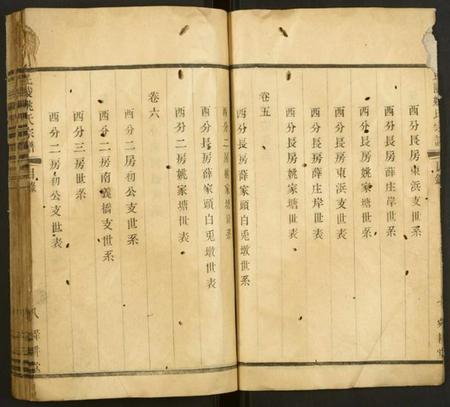 西分長房東浜支世系
西分長房薛庄岸世系
西分長房姚家塘世系
西分長房東浜支世表
西分長房薛庄岸世表
西分長房姚家塘世表
卷五
西分長房薛家頭白兎墩世系
西分二房姚家塘世系
西分長房薛家頭白兎墩世表
西分二房姚家塘世表
卷六
西分二房初公支世系
西分二房南義橋支世系
西分三房世系
西分二房初公支世表
姚氏宗譜
目錄
八